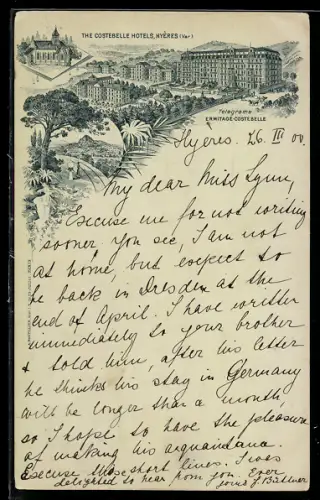 THE COSTEBELLE HOTELS, HYÈRES (Var)
Telegrams
ERMITAGE-COSTEBELLE
Hyeres. 26. III 00.
My dear Miss Lynn,
Excuse me for not writing
sooner. You see, I am not
at home, but expect to
be back in Dresden at the
end of April. I have written
immediately to your brother
& told him, after his letter
he thinks his stay in Germany
will be longer than a month,
so I hope to have the pleasure
of making his acquaintance.
Excuse those short lines. I was
delighted to hear from you. Ever
yours J. Büttner